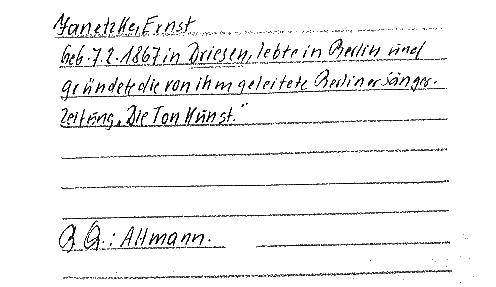 Janetzke, Ernst
geb. 7.2.1867 in Driesen, lebte in Berlin und
gründete die von ihm geleitete Berliner Sänger-
zeitung „Die Tonkunst."
B Q.: Altmann.